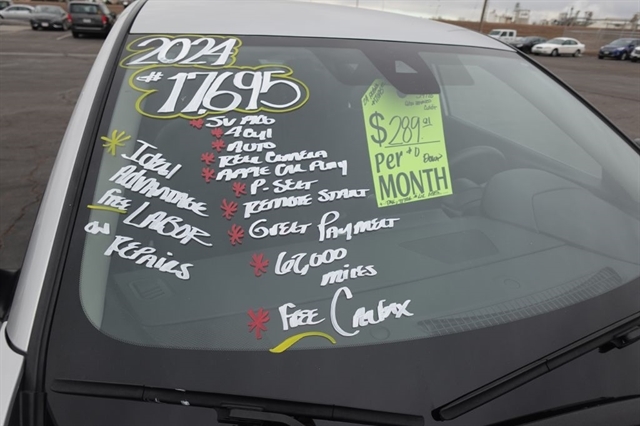 2024
#17,695
* SV PKG
* 4 Cyl
* AUTO
* REAR CAMERA
* APPLE CAR PLAY
* P-SEAT
* REMOTE START
* GREAT PAYMENT
* 67,000
MILES
* FREE CARFAX
* IDEAL
ADVANTAGE
FREE
LABOR
ON
REPAIRS
$289.91
PER
MONTH
$0 DOWN